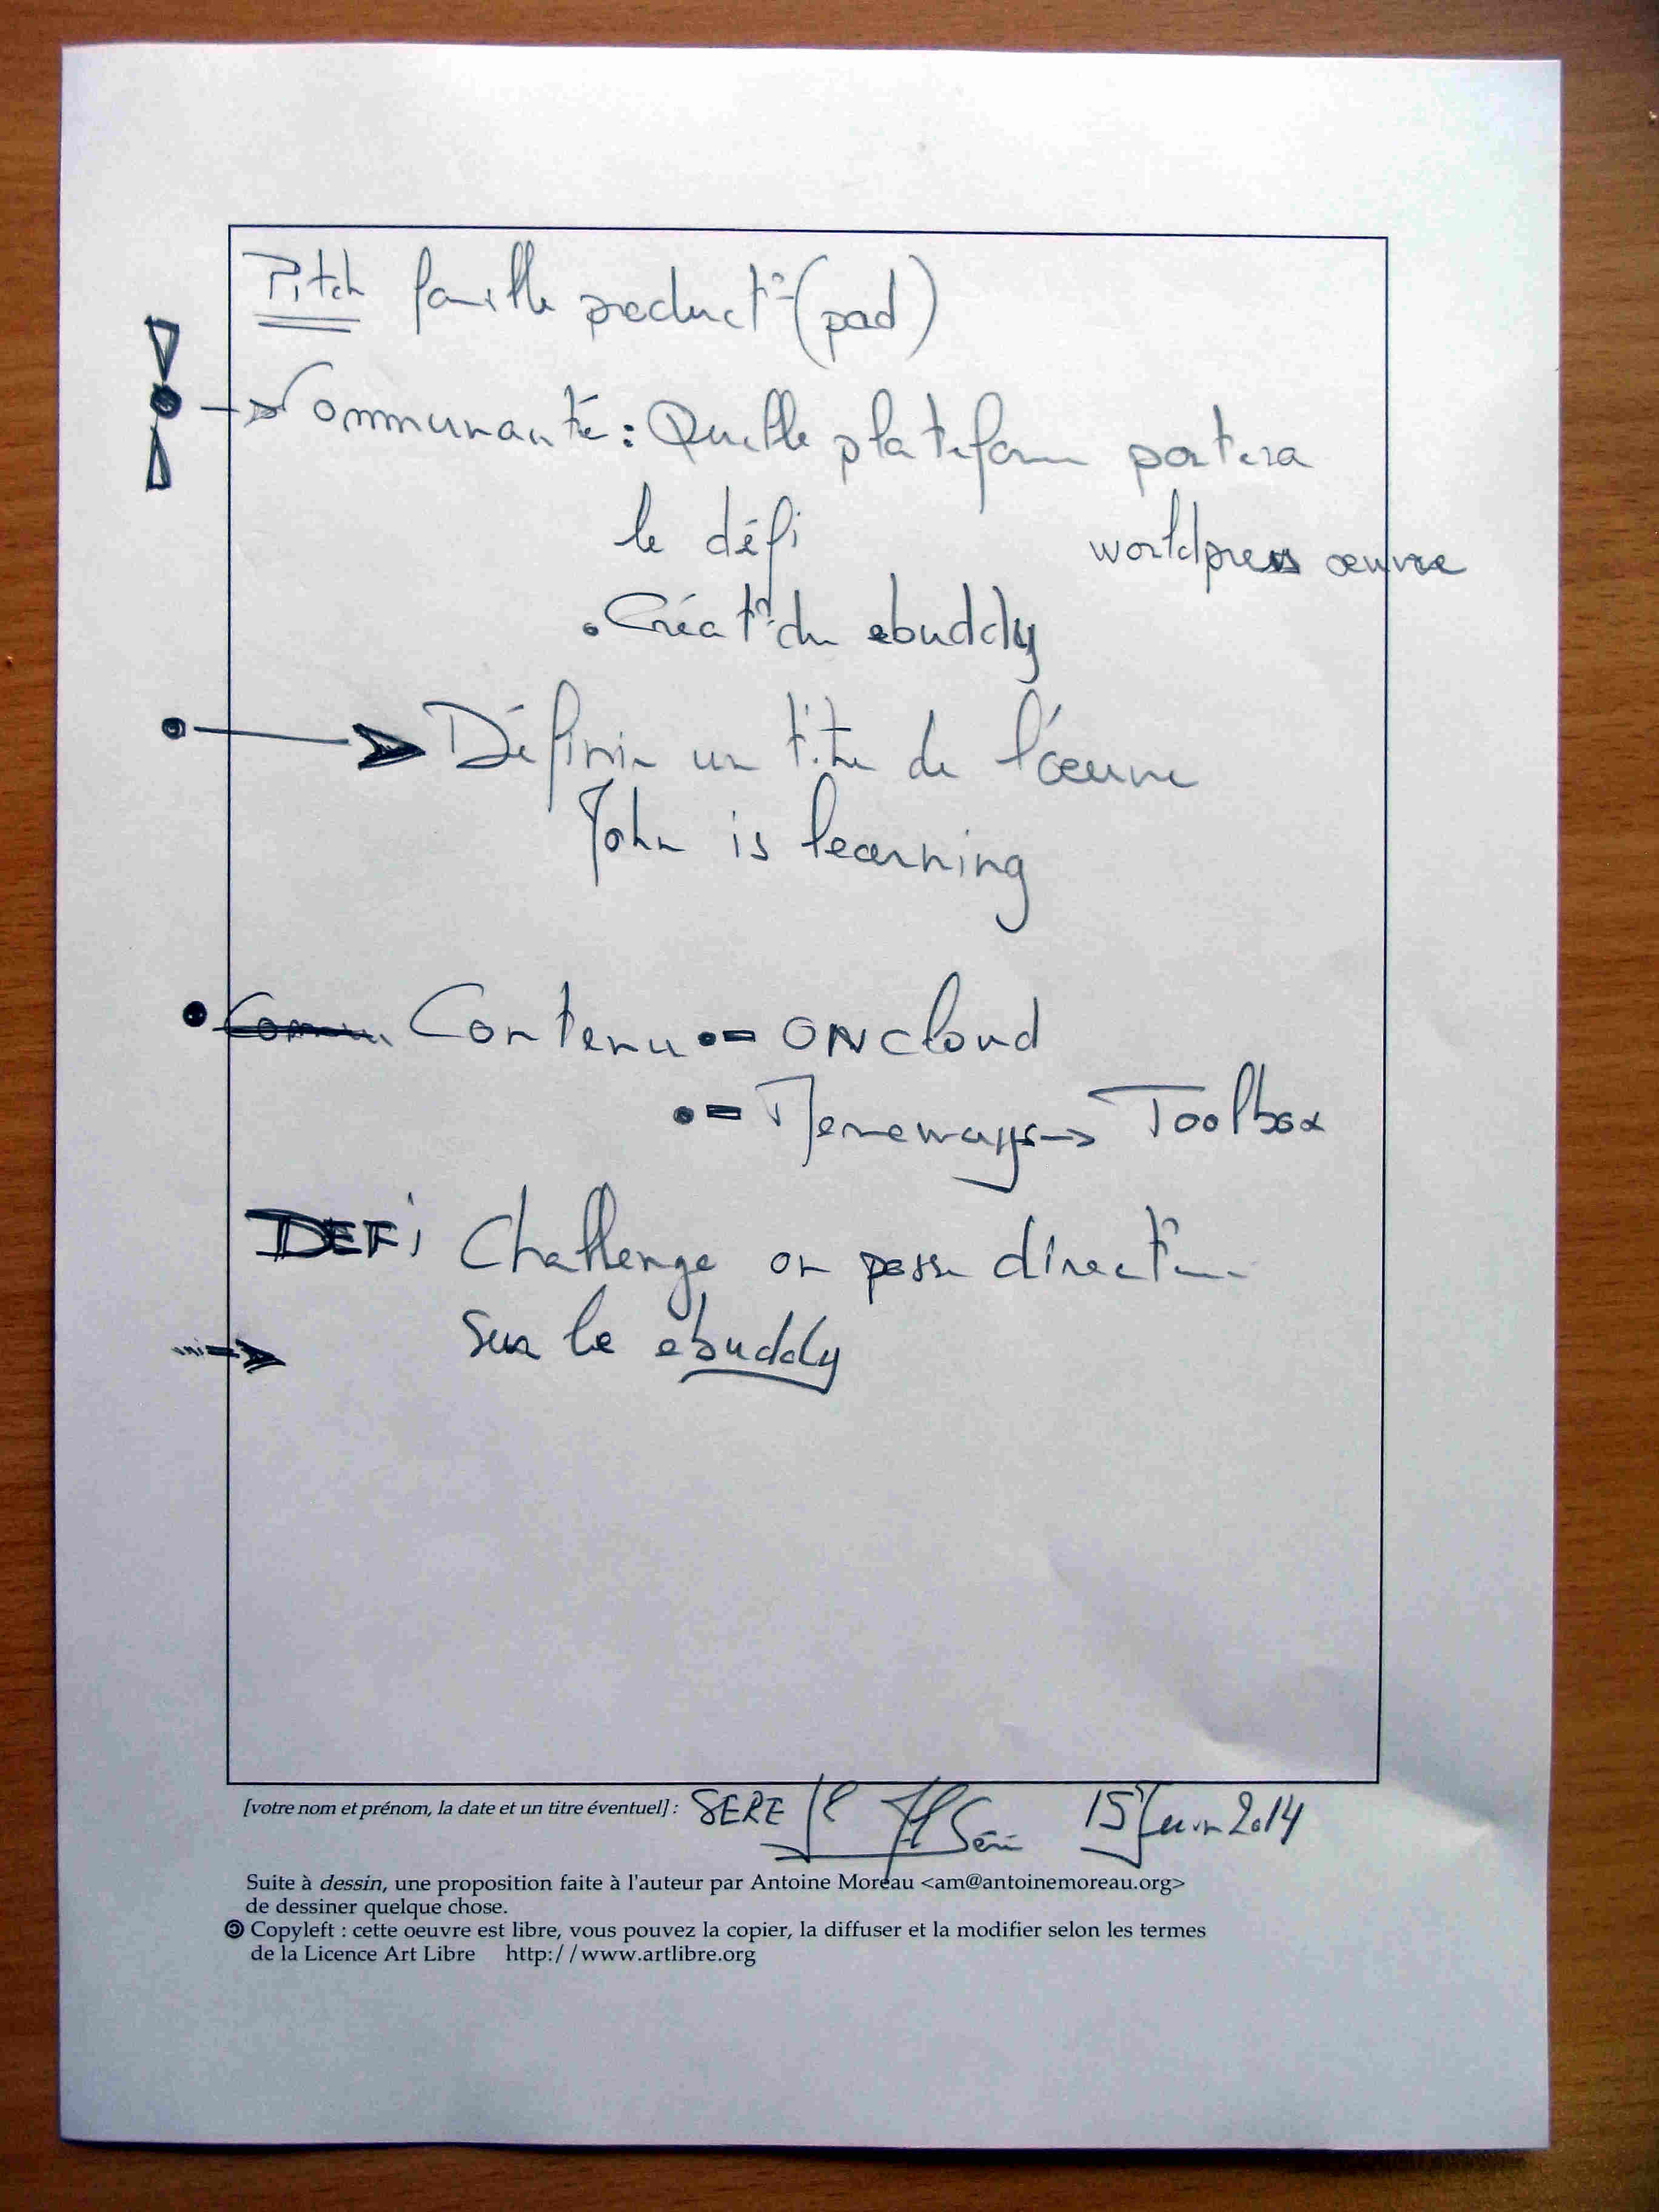 Pitch product° (pad)
Communauté : Quelle plateforme portera
le défi worldpress œuvre
. Créat° du ebuddy
Définir un titre de l'œuvre
John is learning
Contenu - ONCloud
- Memeways -> Toolbox
DEFi Challenge on passe directem
sur le ebuddy
[votre nom et prénom, la date et un titre éventuel] : SERE 15 2014
Suite à dessin, une proposition faite à l'auteur par Antoine Moreau <am@antoinemoreau.org>
de dessiner quelque chose.
Copyleft : cette oeuvre est libre, vous pouvez la copier, la diffuser et la modifier selon les termes
de la Licence Art Libre http://www.artlibre.org